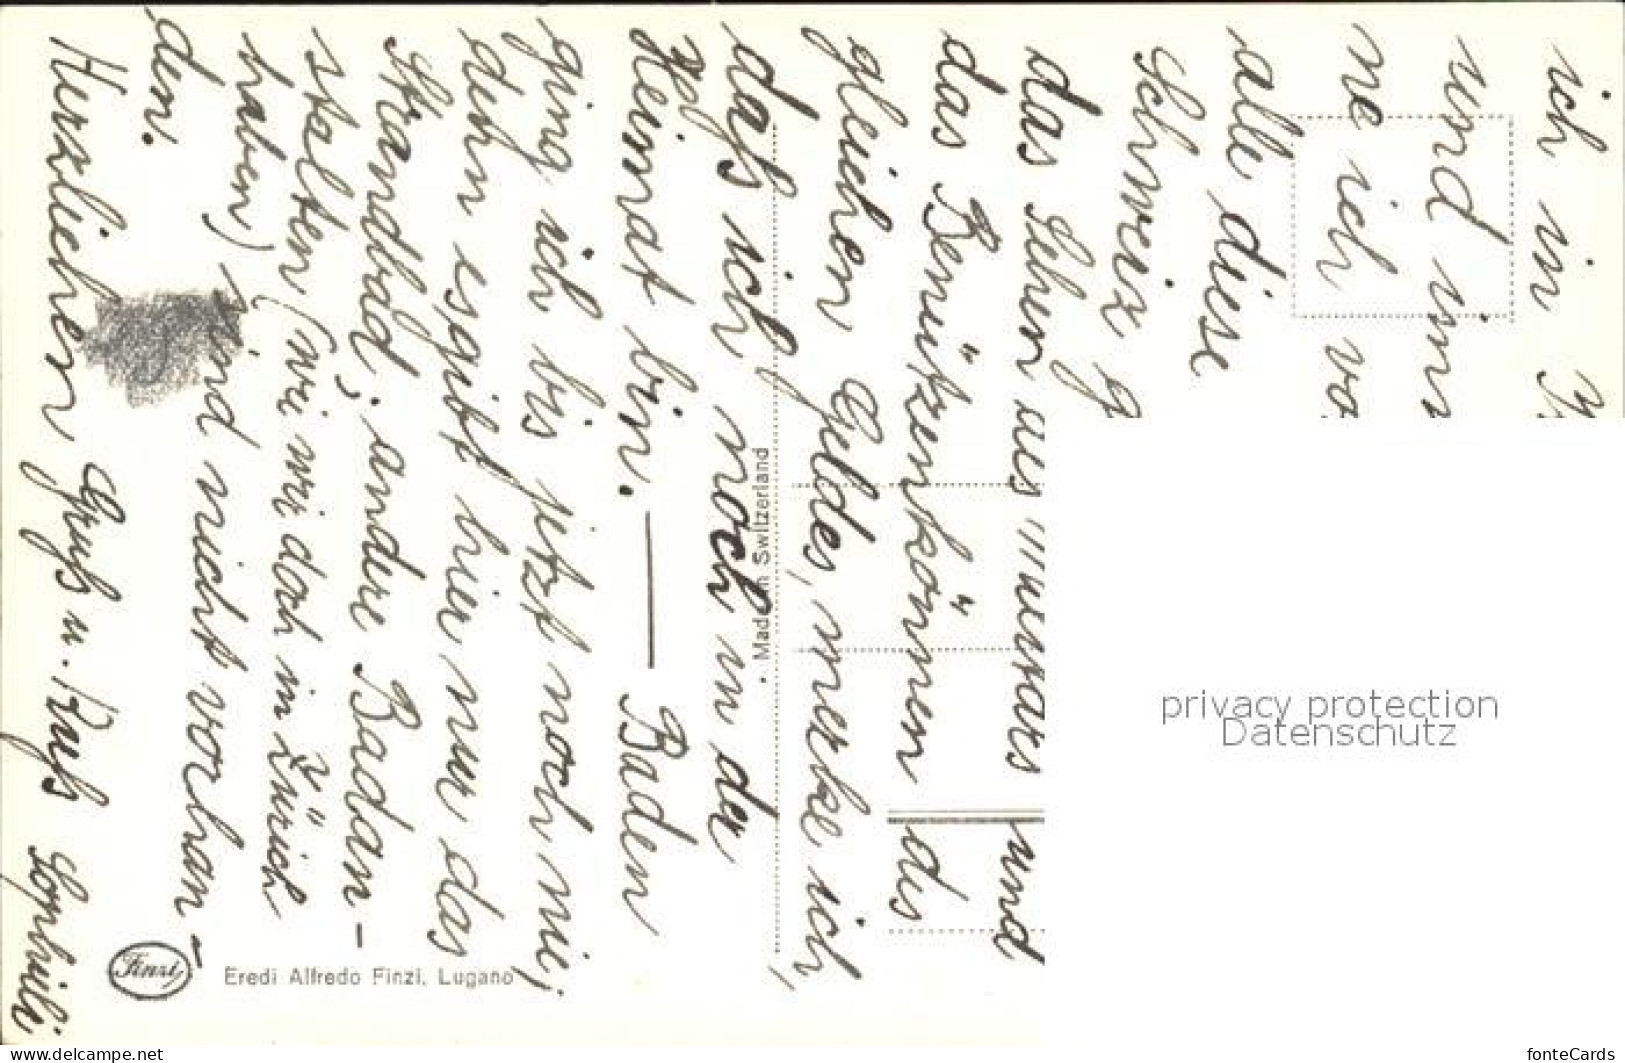 ich in
und im
me ich vo
alle diese
Schweiz g
das Sehen aus und
das Benützenkönnen des
gleichen Geldes, merke ich,
dass ich noch in der
Heimat bin. — Baden
ging ich bis jetzt noch nie,
denn es gibt hier nur das
Strandbad; andere Badan-
stalten (wie wir doch in Zürich
haben) sind nicht vorhan-
den.
Herzlichen Gruss u. Kuss
Made in Switzerland
Finzi
Eredi Alfredo Finzi, Lugano
privacy protection
Datenschutz
www.delcampe.net
fonteCards